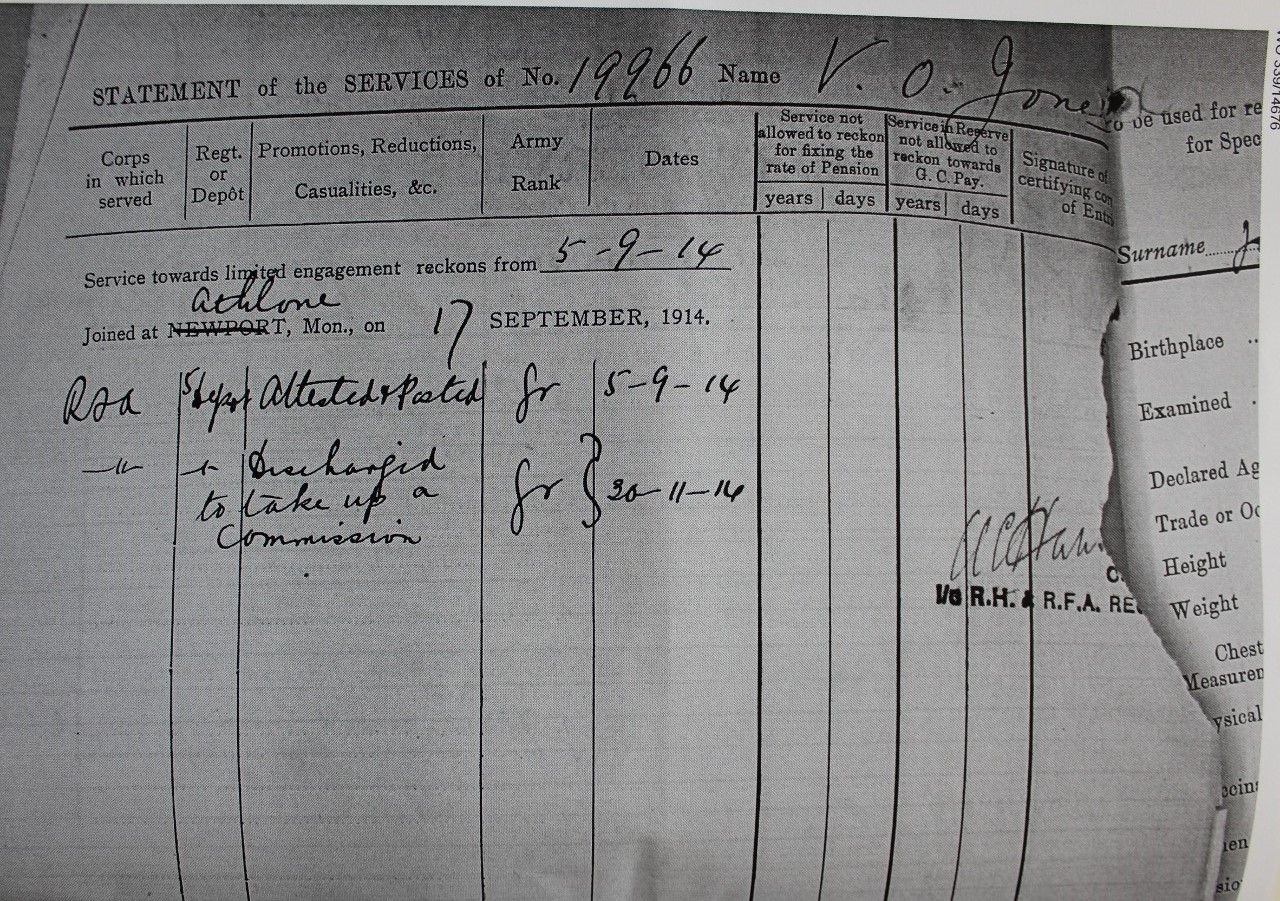 STATEMENT of the SERVICES of No. 19966 Name V. O. Jones
Corps in which served
Regt. or Depôt
Promotions, Reductions, Casualities, &c.
Army Rank
Dates
Service not allowed to reckon for fixing the rate of Pension
years days
Service in Reserve not allowed to reckon towards G. C. Pay.
years days
Signature of
certifying
of
Service towards limited engagement reckons from 5-9-14
Athlone
Joined at NEWPORT, Mon., on 17 SEPTEMBER, 1914.
Attested & Posted Gr 5-9-14
-"- Discharged
to take up a Gr 30-11-14
Commission
R.H. & R.F.A.
to be used for
for
Surname
Birthplace
Examined
Declared
Trade or
Height
Weight
Chest